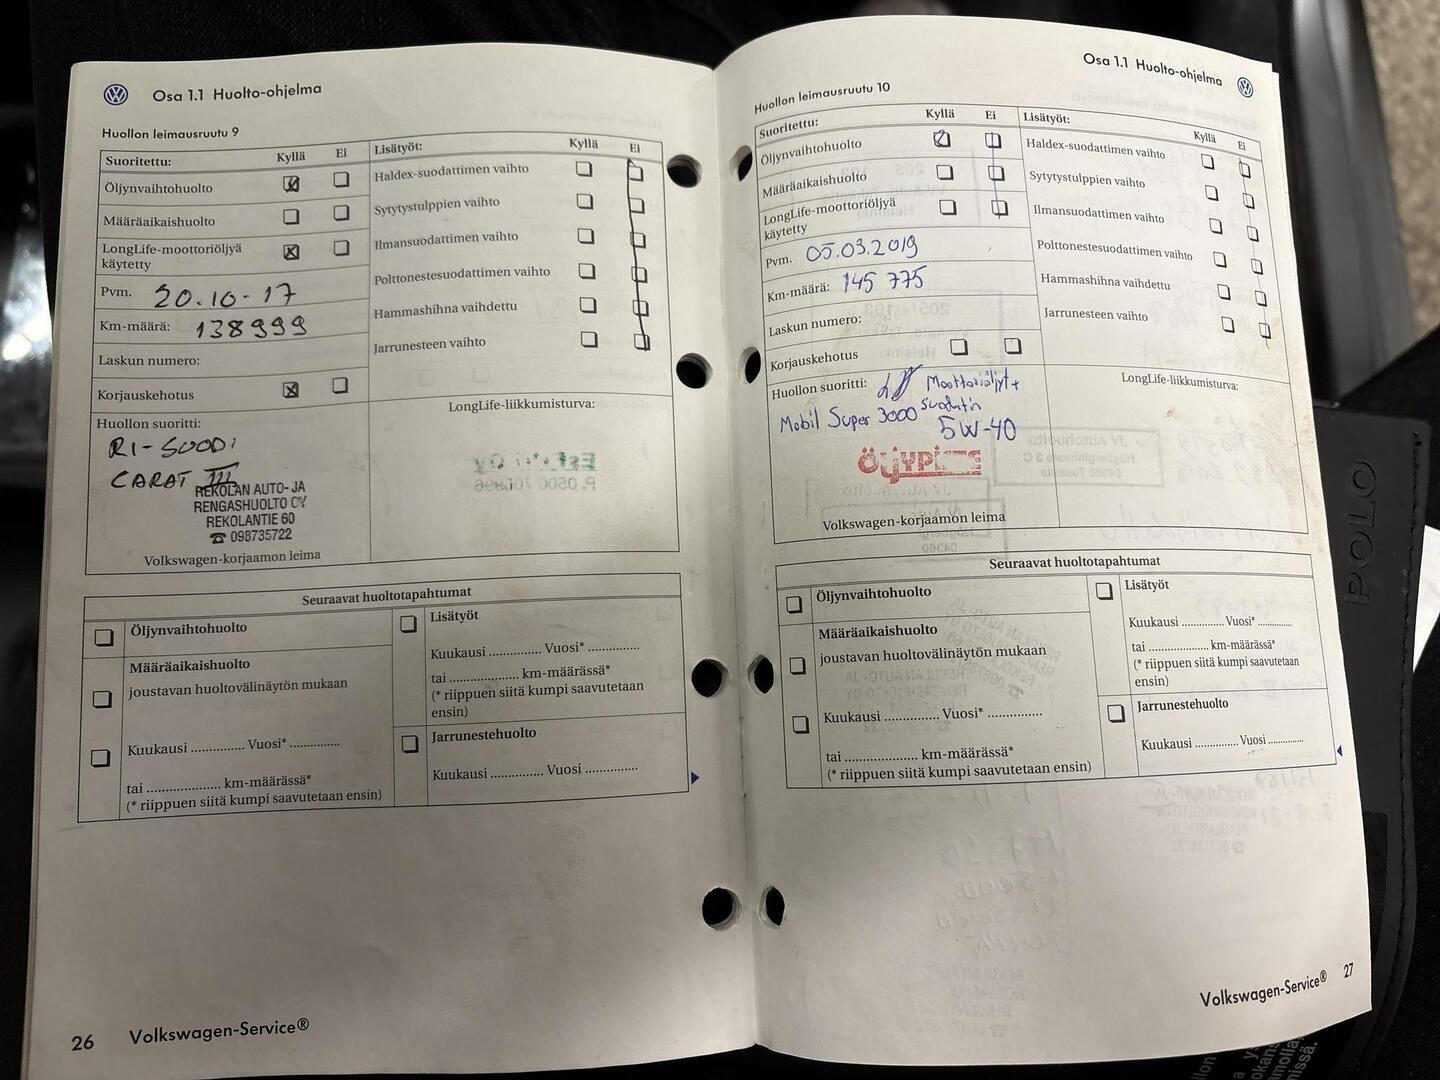 Osa 1.1 Huolto-ohjelma
Huollon leimausruutu 9
Suoritettu: Kyllä Ei
Öljynvaihtohuolto
Määräaikaishuolto
LongLife-moottoriöljyä
käytetty
Pvm. 20.10-17
Km-määrä: 138999
Laskun numero:
Korjauskehotus
Huollon suoritti:
RI-SOODI
CARAT III
REKOLAN AUTO- JA
RENGASHUOLTO OY
REKOLANTIE 60
☎ 098735722
Volkswagen-korjaamon leima
Lisätyöt: Kyllä Ei
Haldex-suodattimen vaihto
Sytytystulppien vaihto
Ilmansuodattimen vaihto
Polttonestesuodattimen vaihto
Hammashihna vaihdettu
Jarrunesteen vaihto
LongLife-liikkumisturva:
Seuraavat huoltotapahtumat
Öljynvaihtohuolto
Määräaikaishuolto
joustavan huoltovälinäytön mukaan
Kuukausi .............. Vuosi* .............
tai .................... km-määrässä*
(* riippuen siitä kumpi saavutetaan ensin)
Lisätyöt
Kuukausi .............. Vuosi* .............
tai .................... km-määrässä*
(* riippuen siitä kumpi saavutetaan
ensin)
Jarrunestehuolto
Kuukausi .............. Vuosi .............
26 Volkswagen-Service®
Osa 1.1 Huolto-ohjelma
Huollon leimausruutu 10
Suoritettu: Kyllä Ei
Öljynvaihtohuolto
Määräaikaishuolto
LongLife-moottoriöljyä
käytetty
Pvm. 05.03.2019
Km-määrä: 145 775
Laskun numero:
Korjauskehotus
Huollon suoritti: Moottoriöljyt+
suodatin
Mobil Super 3000 5W-40
Volkswagen-korjaamon leima
Lisätyöt: Kyllä Ei
Haldex-suodattimen vaihto
Sytytystulppien vaihto
Ilmansuodattimen vaihto
Polttonestesuodattimen vaihto
Hammashihna vaihdettu
Jarrunesteen vaihto
LongLife-liikkumisturva:
Seuraavat huoltotapahtumat
Öljynvaihtohuolto
Määräaikaishuolto
joustavan huoltovälinäytön mukaan
Kuukausi .............. Vuosi* .............
tai .................... km-määrässä*
(* riippuen siitä kumpi saavutetaan ensin)
Lisätyöt
Kuukausi .............. Vuosi* .............
tai .................... km-määrässä*
(* riippuen siitä kumpi saavutetaan
ensin)
Jarrunestehuolto
Kuukausi .............. Vuosi .............
Volkswagen-Service® 27
POLO